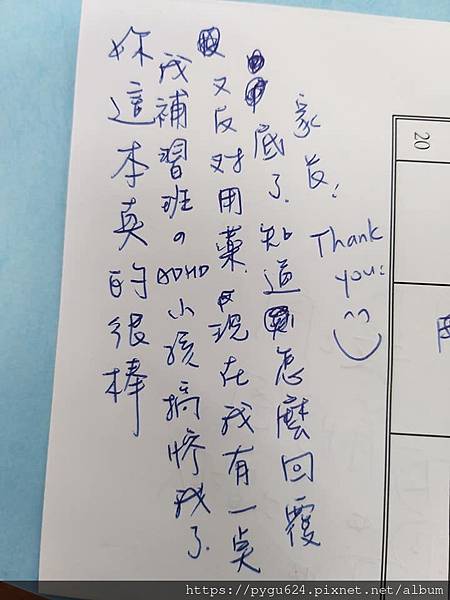 妳這本真的很棒
我補習班のADHD小孩搞慘我了.
又反对用藥.現在我有一点
底了.知道怎麼回覆
家长!
Thank
you:
20
https://pygu624.pixnet.net/album